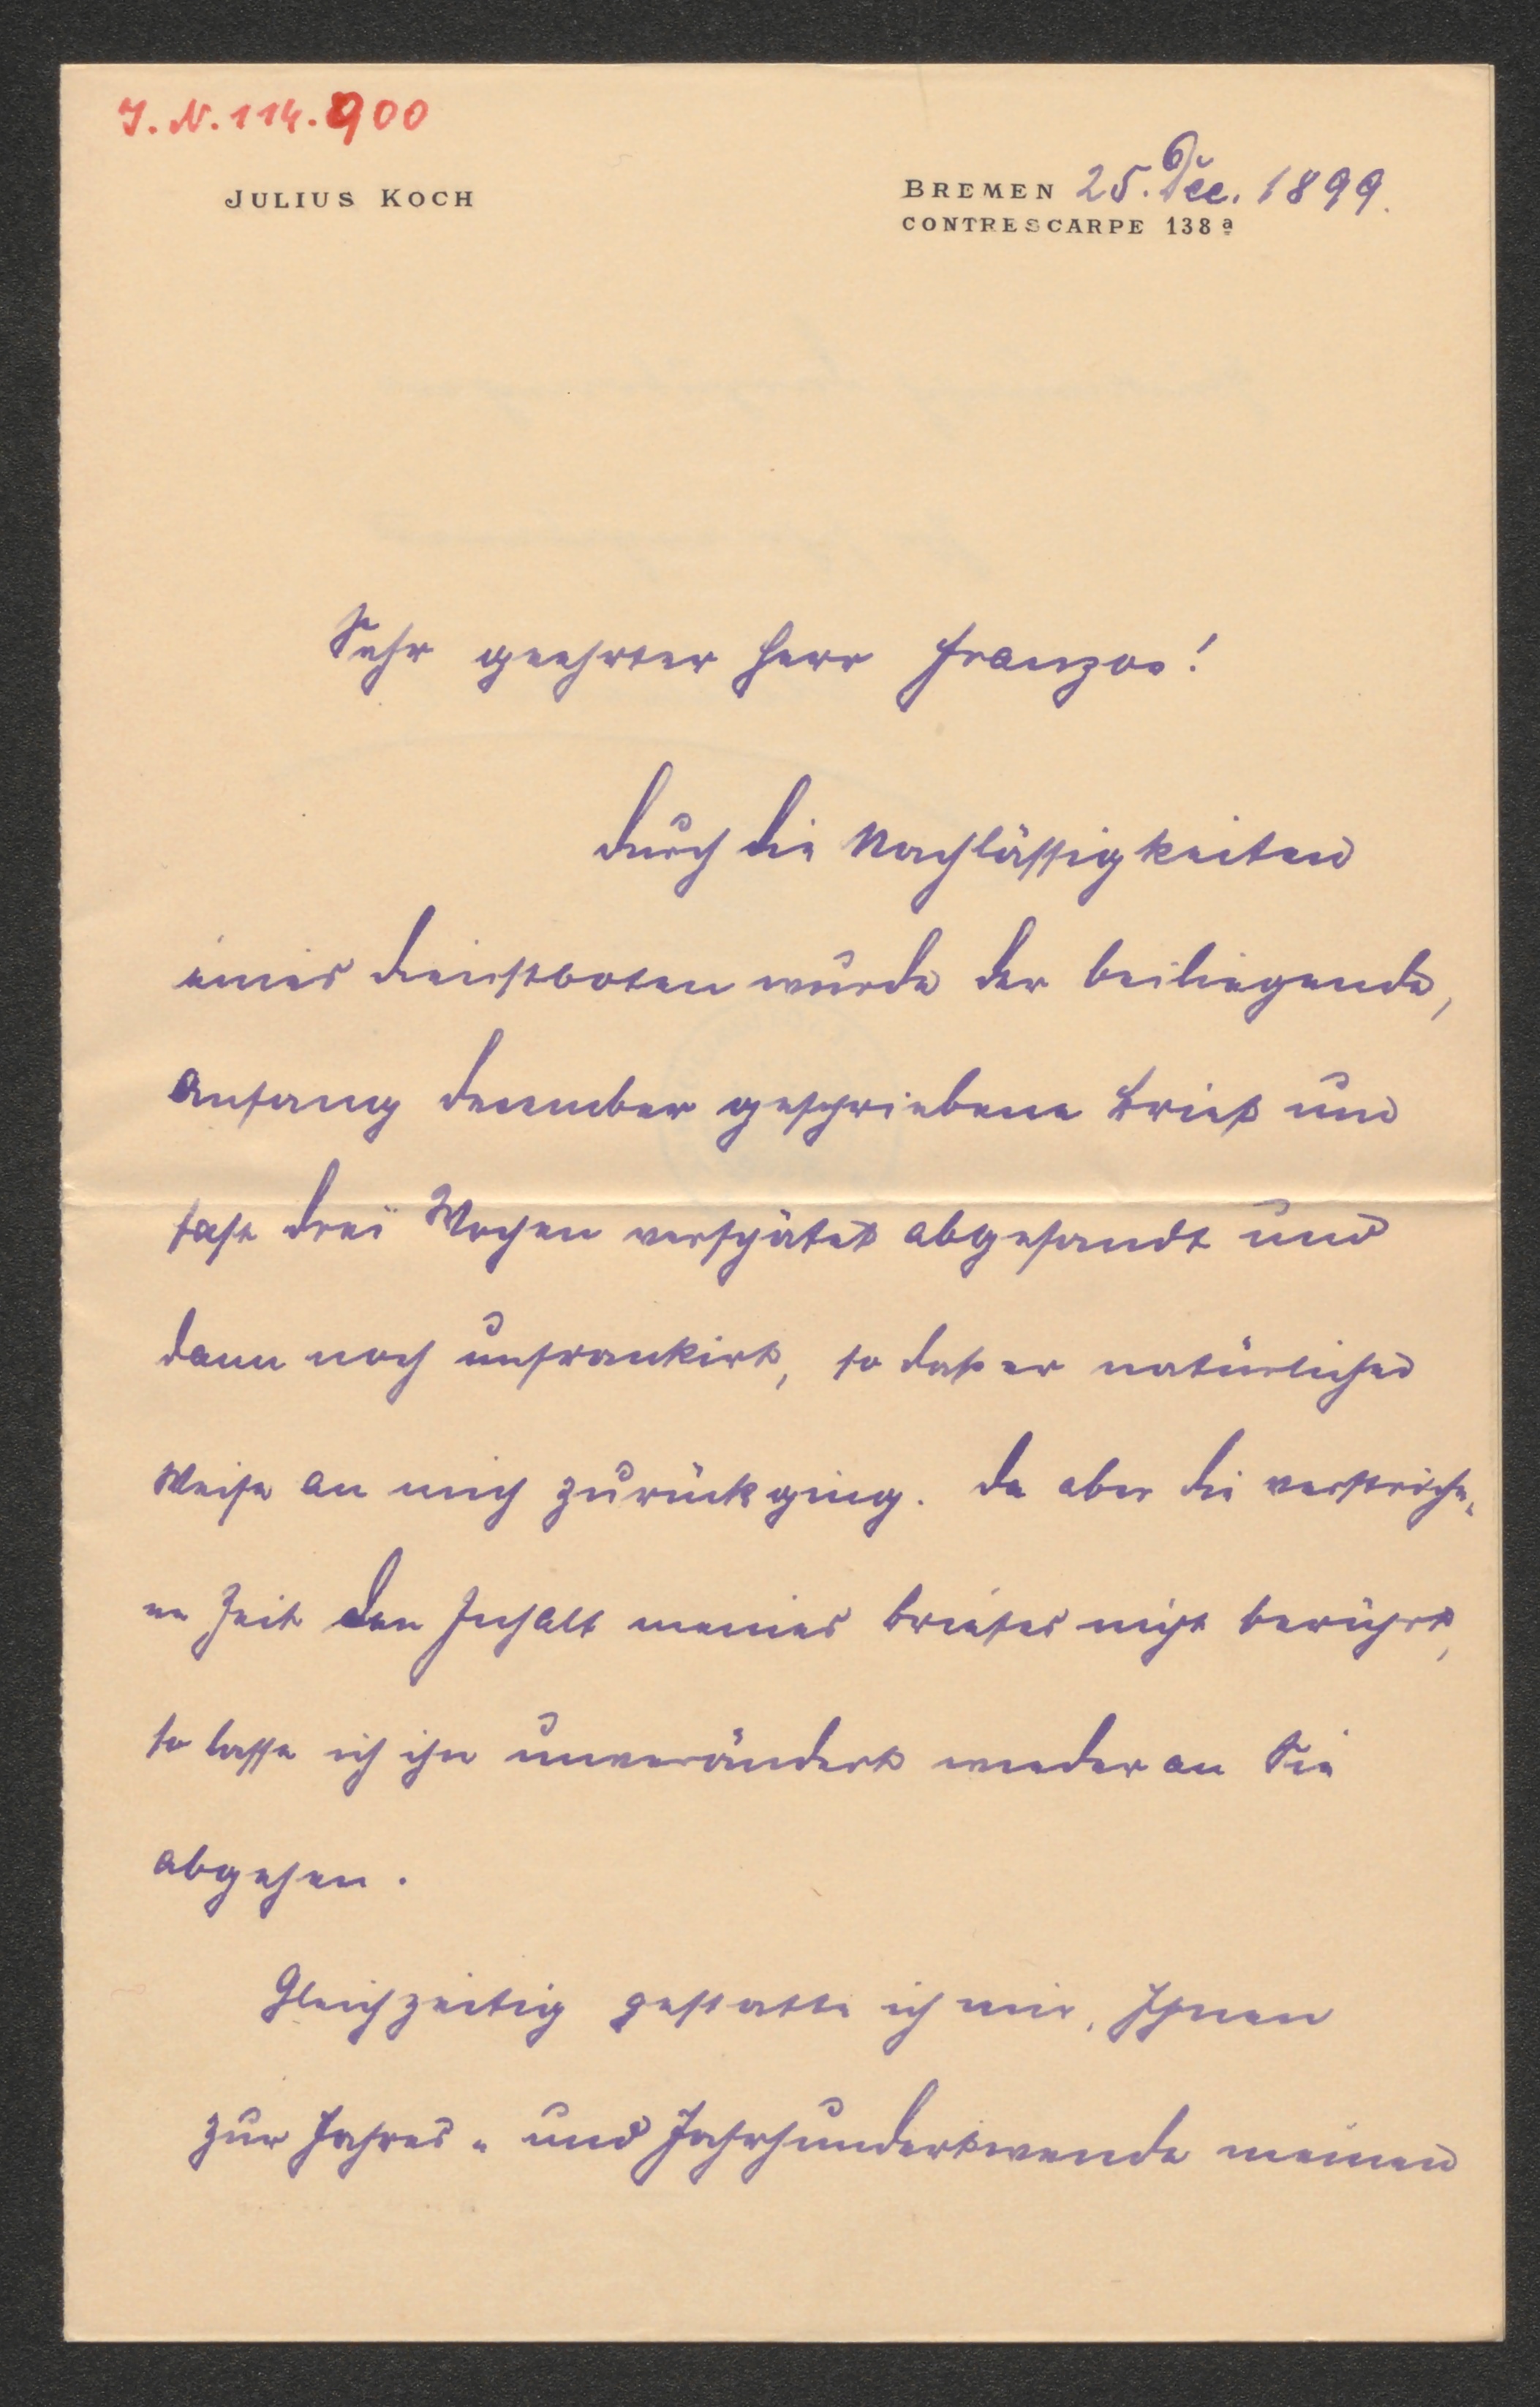 J. N. 114.900
JULIUS KOCH
BREMEN 25. Dec. 1899.
CONTRESCARPE 138a
Sehr geehrter Herr Franzos!
Durch die Nachlässigkeiten
eines Dienstboten wurde der beiliegende,
Anfang December geschriebene Brief um
fast drei Wochen verspätet abgesandt und
dann noch unfrankirt, so daß er natürlicher
Weise an mich zurückging. Da aber die verstriche-
ne Zeit den Inhalt meines Briefes nicht berührt,
so lasse ich ihn unverändert wieder an Sie
abgehen.
Gleichzeitig gestatte ich mir, Ihnen
zur Jahres- und Jahrhundertwende meinen